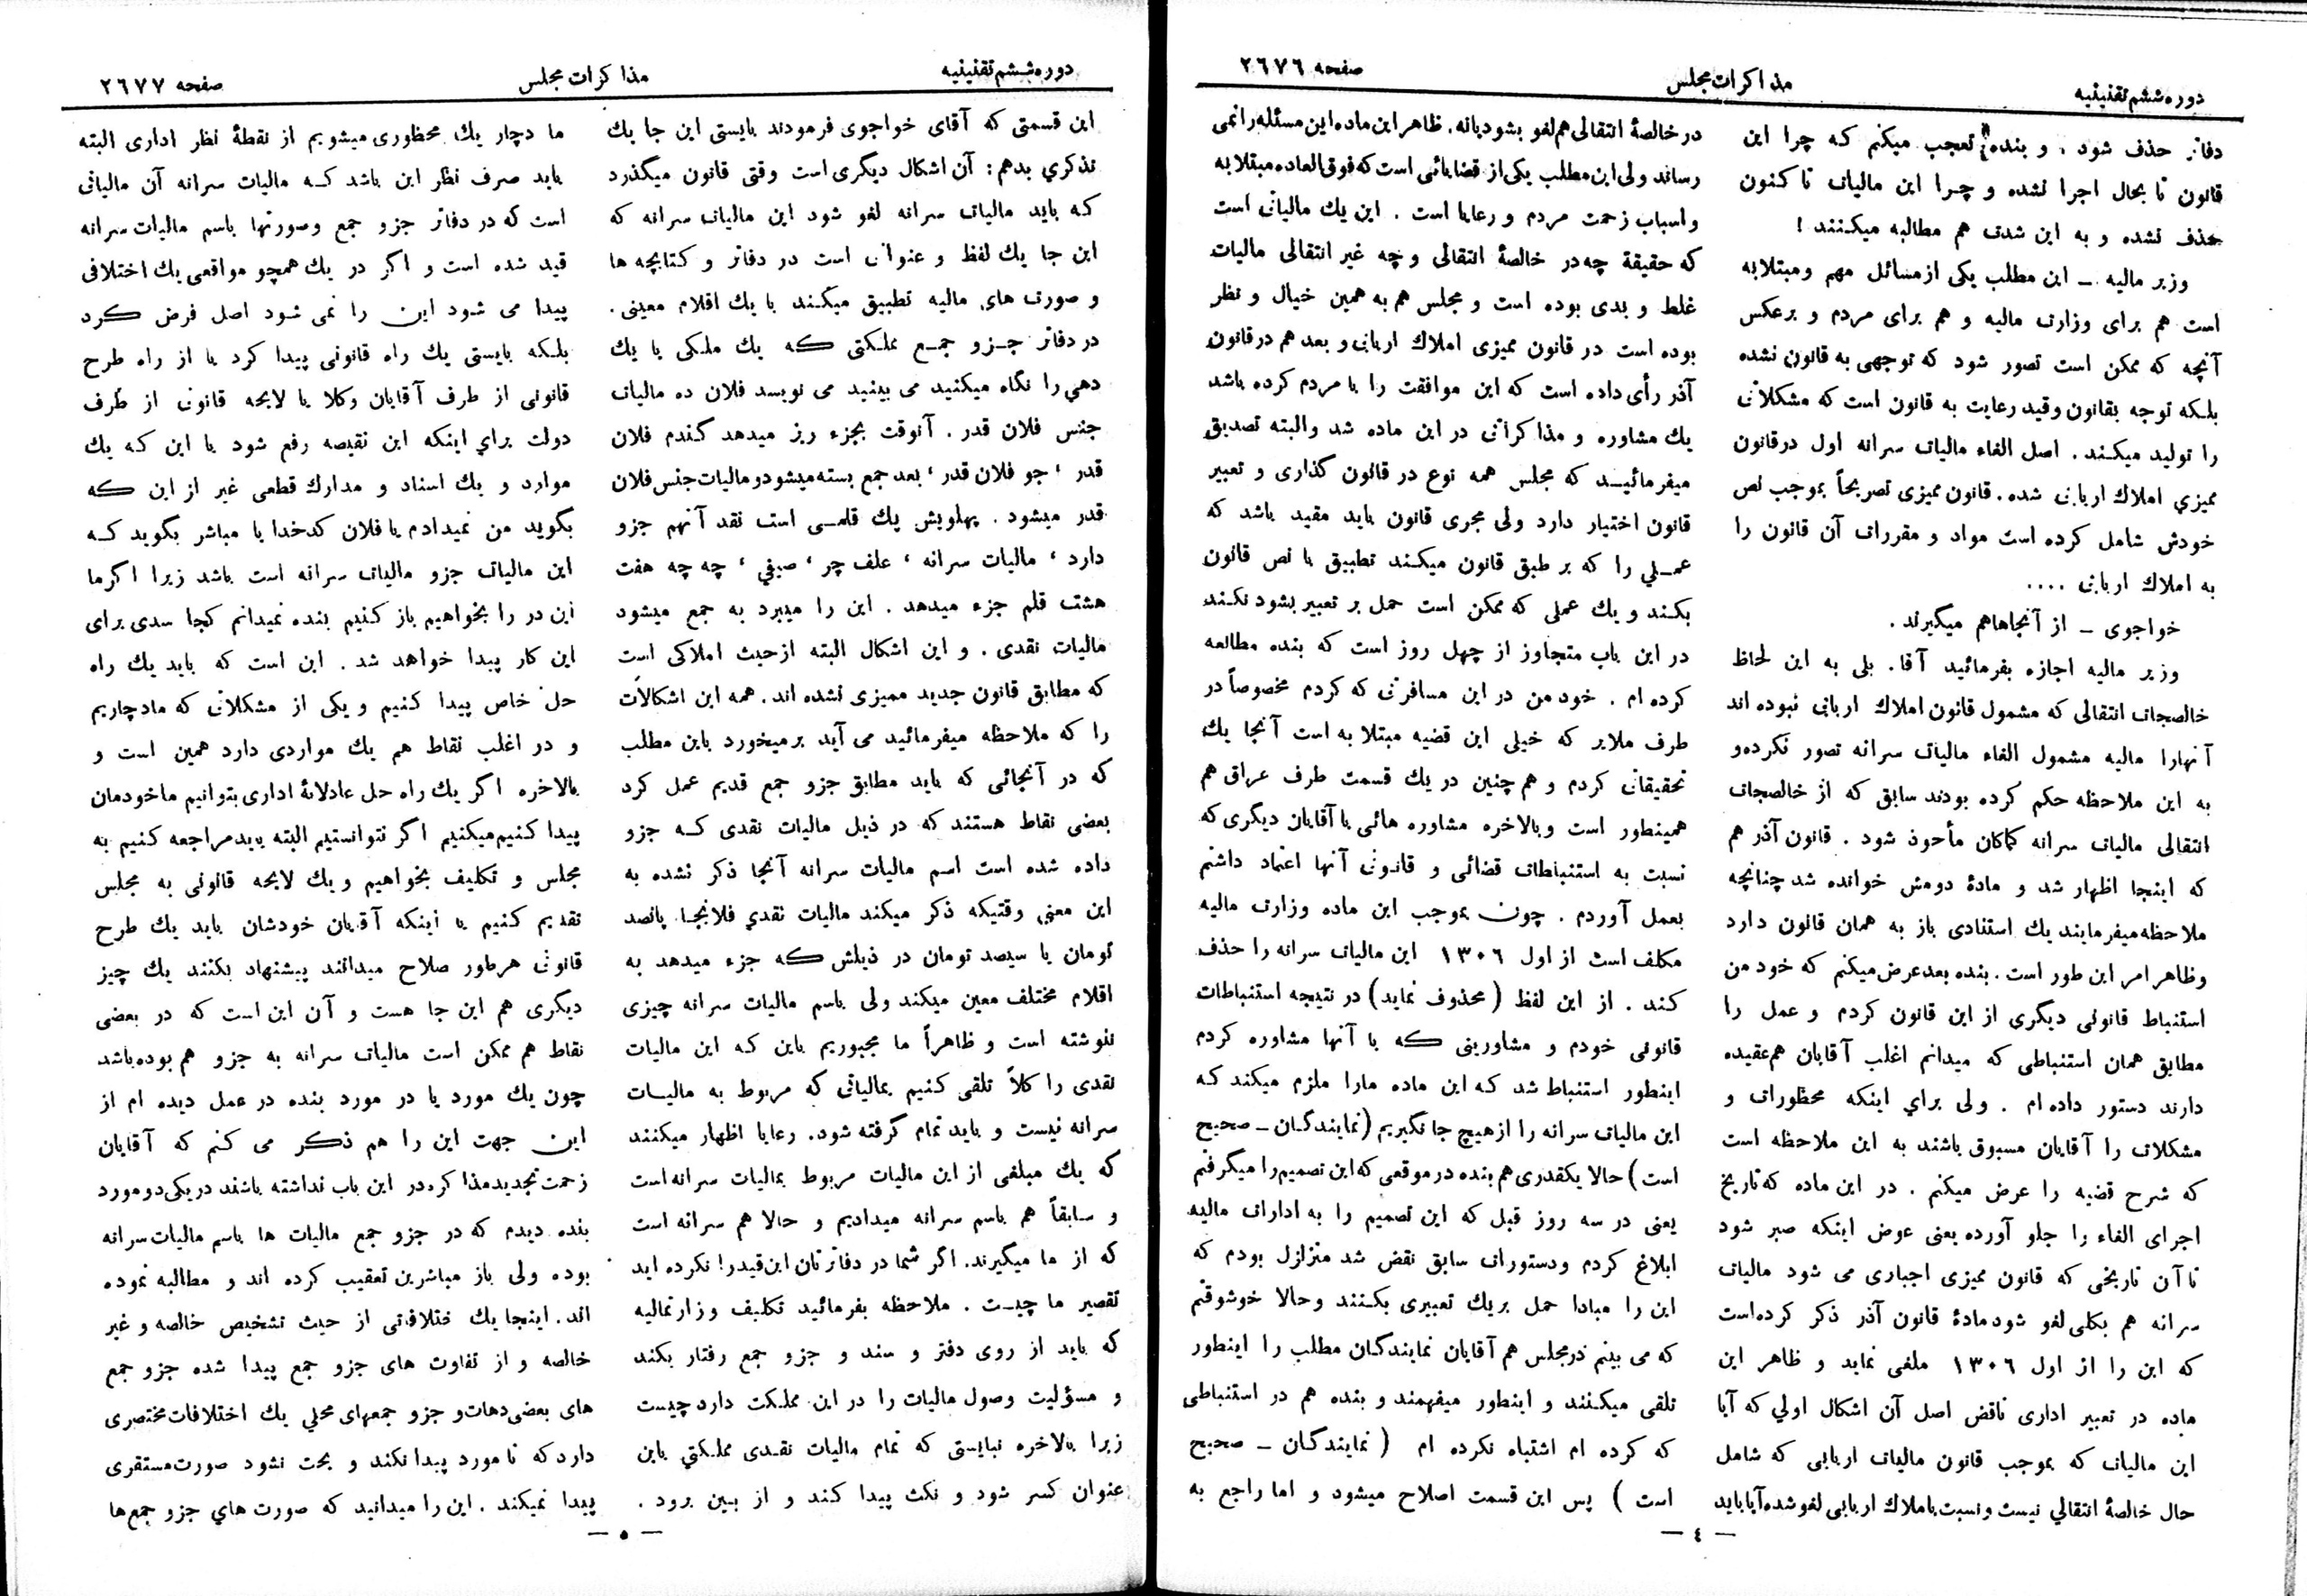 دوره ششم تقنینیه
مذاکرات مجلس
صفحه ۲۶۷۶
دفاتر حذف شود ، و بنده تعجب میکنم که چرا این
قانون تا بحال اجرا نشده و چرا این مالیات تا کنون
حذف نشده و به این شدت هم مطالبه میکنند !
وزیر مالیه – این مطلب یکی از مسائل مهم و مبتلابه
است هم برای وزارت مالیه و هم برای مردم و برعکس
آنچه که ممکن است تصور شود که توجهی به قانون نشده
بلکه توجه بقانون و قید رعایت به قانون است که مشکلاتی
را تولید میکند . اصل الغاء مالیات سرانه اول در قانون
ممیزی املاك اربابی شده . قانون ممیزی تصریحاً بموجب نص
خودش شامل کرده است مواد و مقررات آن قانون را
به املاك اربابی ....
خواجوی – از آنجاها هم میگیرند .
وزیر مالیه اجازه بفرمائید آقا . بلی به این لحاظ
خالصجات انتقالی که مشمول قانون املاك اربابی نبوده اند
آنهارا مالیه مشمول الغاء مالیات سرانه تصور نکرده و
به این ملاحظه حکم کرده بودند سابق که از خالصجات
انتقالی مالیات سرانه کماکان مأخوذ شود . قانون آذر هم
که اینجا اظهار شد و مادهٔ دومش خوانده شد چنانچه
ملاحظه میفرمایند یك استنادی باز به همان قانون دارد
و ظاهر امر این طور است . بنده بعد عرض میکنم که خود من
استنباط قانونی دیگری از این قانون کردم و عمل را
مطابق همان استنباطی که میدانم اغلب آقایان هم عقیده
دارند دستور داده ام . ولی برای اینکه محظورات و
مشکلات را آقایان مسبوق باشند به این ملاحظه است
که شرح قضیه را عرض میکنم . در این ماده که تاریخ
اجرای الغاء را جلو آورده یعنی عوض اینکه صبر شود
تا آن تاریخی که قانون ممیزی اجباری می شود مالیات
سرانه هم بکلی لغو شود مادهٔ قانون آذر ذکر کرده است
که این را از اول ۱۳۰۶ ملغی نماید و ظاهر این
ماده در تعبیر اداری ناقض اصل آن اشکال اولی که آیا
این مالیات که بموجب قانون مالیات اربابی که شامل
حال خالصهٔ انتقالی نیست و نسبت باملاك اربابی لغو شده آیا باید
در خالصهٔ انتقالی هم لغو بشود یا نه . ظاهر این ماده این مسئله را نمی
رساند ولی این مطلب یکی از قضایائی است که فوق العاده مبتلا به
و اسباب زحمت مردم و رعایا است . این یك مالیاتی است
که حقیقة چه در خالصهٔ انتقالی و چه غیر انتقالی مالیات
غلط و بدی بوده است و مجلس هم به همین خیال و نظر
بوده است در قانون ممیزی املاك اربابی و بعد هم در قانون
آذر رأی داده است که این موافقت را با مردم کرده باشد
یك مشاوره و مذاکراتی در این ماده شد و البته تصدیق
میفرمائید که مجلس همه نوع در قانون گذاری و تعبیر
قانون اختیار دارد ولی مجری قانون باید مقید باشد که
عملی را که بر طبق قانون میکند تطبیق با نص قانون
بکند و یك عملی که ممکن است حمل بر تعبیر بشود نکند
در این باب متجاوز از چهل روز است که بنده مطالعه
کرده ام . خود من در این مسافرتی که کردم مخصوصاً در
طرف ملایر که خیلی این قضیه مبتلا به است آنجا یك
تحقیقاتی کردم و هم چنین در یك قسمت طرف عراق هم
همینطور است و بالاخره مشاوره هائی با آقایان دیگری که
نسبت به استنباطات قضائی و قانونی آنها اعتماد داشتم
بعمل آوردم . چون بموجب این ماده وزارت مالیه
مکلف است از اول ۱۳۰۶ این مالیات سرانه را حذف
کند . از این لفظ ( محذوف نماید ) در نتیجه استنباطات
قانونی خودم و مشاورینی که با آنها مشاوره کردم
اینطور استنباط شد که این ماده مارا ملزم میکند که
این مالیات سرانه را از هیچ جا نگیریم ( نمایندگان – صحیح
است ) حالا یکقدری هم بنده در موقعی که این تصمیم را میگرفتم
یعنی در سه روز قبل که این تصمیم را به ادارات مالیه
ابلاغ کردم و دستورات سابق نقض شد متزلزل بودم که
این را مبادا حمل بر یك تعبیری بکنند و حالا خوشوقتم
که می بینم در مجلس هم آقایان نمایندگان مطلب را اینطور
تلقی میکنند و اینطور میفهمند و بنده هم در استنباطی
که کرده ام اشتباه نکرده ام ( نمایندگان – صحیح
است ) پس این قسمت اصلاح میشود و اما راجع به
– ٤ –
دوره ششم تقنینیه
مذاکرات مجلس
صفحه ۲۶۷۷
این قسمتی که آقای خواجوی فرمودند بایستی این جا یك
تذکری بدهم : آن اشکال دیگری است وقتی قانون میگذرد
که باید مالیات سرانه لغو شود این مالیات سرانه که
این جا یك لفظ و عنوان است در دفاتر و کتابچه ها
و صورت های مالیه تطبیق میکند با یك اقلام معینی .
در دفاتر جزو جمع مملکتی که یك ملکی یا یك
دهی را نگاه میکنید می بینید می نویسد فلان ده مالیات
جنس فلان قدر . آنوقت بجزء ریز میدهد گندم فلان
قدر ، جو فلان قدر ، بعد جمع بسته میشود و مالیات جنس فلان
قدر میشود . پهلویش یك قلمی است نقد آنهم جزو
دارد ، مالیات سرانه ، علف چر ، صیفی ، چه چه هفت
هشت قلم جزء میدهد . این را میبرد به جمع میشود
مالیات نقدی . و این اشکال البته از حیث املاکی است
که مطابق قانون جدید ممیزی نشده اند . همه این اشکالات
را که ملاحظه میفرمائید می آید برمیخورد باین مطلب
که در آنجائی که باید مطابق جزو جمع قدیم عمل کرد
بعضی نقاط هستند که در ذیل مالیات نقدی که جزو
داده شده است اسم مالیات سرانه آنجا ذکر نشده به
این معنی وقتیکه ذکر میکند مالیات نقدی فلانجا پانصد
تومان یا سیصد تومان در ذیلش که جزء میدهد به
اقلام مختلف معین میکند ولی باسم مالیات سرانه چیزی
ننوشته است و ظاهراً ما مجبوریم باین که این مالیات
نقدی را کلاً تلقی کنیم بمالیاتی که مربوط به مالیات
سرانه نیست و باید تمام گرفته شود . رعایا اظهار میکنند
که یك مبلغی از این مالیات مربوط بمالیات سرانه است
و سابقاً هم باسم سرانه میدادیم و حالا هم سرانه است
که از ما میگیرند . اگر شما در دفاترتان این قید را نکرده اید
تقصیر ما چیست . ملاحظه بفرمائید تکلیف وزارتمالیه
که باید از روی دفتر و سند و جزو جمع رفتار بکند
و مسؤلیت وصول مالیات را در این مملکت دارد چیست
زیرا بالاخره نبایستی که تمام مالیات نقدی مملکتی باین
عنوان کسر شود و نکث پیدا کند و از بین برود .
ما دچار یك محظوری میشویم از نقطهٔ نظر اداری البته
باید صرف نظر این باشد که مالیات سرانه آن مالیاتی
است که در دفاتر جزو جمع و صورتها باسم مالیات سرانه
قید شده است و اگر در یك همچو مواقعی یك اختلافی
پیدا می شود این را نمی شود اصل فرض کرد
بلکه بایستی یك راه قانونی پیدا کرد یا از راه طرح
قانونی از طرف آقایان وکلا یا لایحه قانونی از طرف
دولت برای اینکه این نقیصه رفع شود یا این که یك
موارد و یك اسناد و مدارك قطعی غیر از این که
بگوید من نمیدادم یا فلان کدخدا یا مباشر بگوید که
این مالیات جزو مالیات سرانه است باشد زیرا اگر ما
این در را بخواهیم باز کنیم بنده نمیدانم کجا سدی برای
این کار پیدا خواهد شد . این است که باید یك راه
حل خاص پیدا کنیم و یکی از مشکلاتی که ما دچاریم
و در اغلب نقاط هم یك مواردی دارد همین است و
بالاخره اگر یك راه حل عادلانهٔ اداری بتوانیم ما خودمان
پیدا کنیم میکنیم اگر نتوانستیم البته باید مراجعه کنیم به
مجلس و تکلیف بخواهیم و یك لایحه قانونی به مجلس
تقدیم کنیم یا اینکه آقایان خودشان باید یك طرح
قانونی هر طور صلاح میدانند پیشنهاد بکنند یك چیز
دیگری هم این جا هست و آن این است که در بعضی
نقاط هم ممکن است مالیات سرانه به جزو هم بوده باشد
چون یك مورد یا در مورد بنده در عمل دیده ام از
این جهت این را هم ذکر می کنم که آقایان
زحمت تجدید مذاکره در این باب نداشته باشند در یکی دو مورد
بنده دیدم که در جزو جمع مالیات ها باسم مالیات سرانه
بوده ولی باز مباشرین تعقیب کرده اند و مطالبه نموده
اند . اینجا یك ختلافاتی از حیث تشخیص خالصه و غیر
خالصه و از تفاوت های جزو جمع پیدا شده جزو جمع
های بعضی دهات و جزو جمعهای محلی یك اختلافات مختصری
دارد که تا مورد پیدا نکند و بحث نشود صورت مستقری
پیدا نمیکند . این را میدانید که صورت های جزو جمع ها
– ٥ –